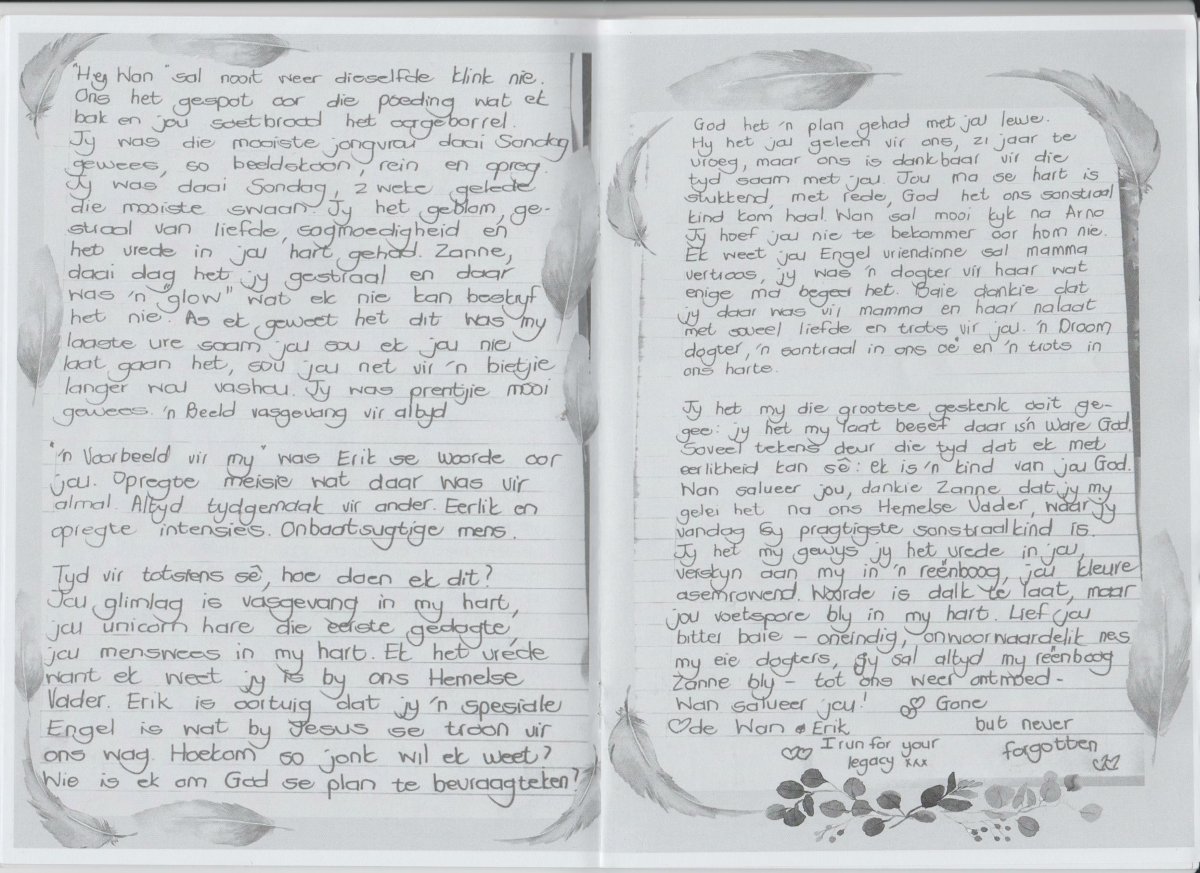 "Hey Wan" sal nooit weer dieselfde klink nie.
Ons het gespot oor die poeding wat ek
bak en jou soetbrood het oorgeborrel.
Jy was die mooiste jongvrou daai Sondag
gewees, so beeldskoon, rein en opreg.
Jy was daai Sondag, 2 weke gelede
die mooiste swaan. Jy het geblom, ge-
straal van liefde, sagmoedigheid en
het vrede in jou hart gehad. Zanne,
daai dag het jy gestraal en daar
was 'n "glow" wat ek nie kan beskryf
het nie. As ek geweet het dit was my
laaste ure saam jou sou ek jou nie
laat gaan het, sou jou net vir 'n bietjie
langer wou vashou. Jy was prentjie mooi
gewees. 'n Beeld vasgevang vir altyd
"'n Voorbeeld vir my" was Erik se woorde oor
jou. Opregte meisie wat daar was vir
almal. Altyd tydgemaak vir ander. Eerlik en
opregte intensies. Onbaatsugtige mens.
Tyd vir totsiens sê, hoe doen ek dit?
Jou glimlag is vasgevang in my hart,
jou unicorn hare die eerste gedagte,
jou menswees in my hart. Ek het vrede
want ek weet jy is by ons Hemelse
Vader. Erik is oortuig dat jy 'n spesiale
Engel is wat by Jesus se troon vir
ons wag. Hoekom so jonk wil ek weet?
Wie is ek om God se plan te bevraagteken?
God het 'n plan gehad met jou lewe.
Hy het jou geleen vir ons, 21 jaar te
vroeg, maar ons is dankbaar vir die
tyd saam met jou. Jou ma se hart is
stukkend, met rede, God het ons sonstraal
kind kom haal. Wan sal mooi kyk na Arno
Jy hoef jou nie te bekommer oor hom nie.
Ek weet jou Engel vriendinne sal mamma
vertroos, jy was 'n dogter vir haar wat
enige ma begeer het. Baie dankie dat
jy daar was vir mamma en haar nalaat
met soveel liefde en trots vir jou. 'n Droom
dogter, 'n sontraal in ons oë en 'n trots in
ons harte.
Jy het my die grootste geskenk ooit ge-
gee: jy het my laat besef daar is 'n Ware God.
Soveel tekens deur die tyd dat ek met
eerlikheid kan sê: ek is 'n kind van jou God.
Wan salueer jou, dankie Zanne dat jy my
gelei het na ons Hemelse Vader, waar jy
vandag sy pragtigste sonstraalkind is.
Jy het my gewys jy het vrede in jou,
verskyn aan my in 'n reënboog, jou kleure
asemrowend. Woorde is dalk te laat, maar
jou voetspore bly in my hart. Lief jou
bitter baie - oneindig, onvoorwaardelik nes
my eie dogters, jy sal altyd my reënboog
Zanne bly - tot ons weer ontmoed -
Wan salueer jou! Gone
de Wan & Erik but never
I run for your forgotten
legacy xxx